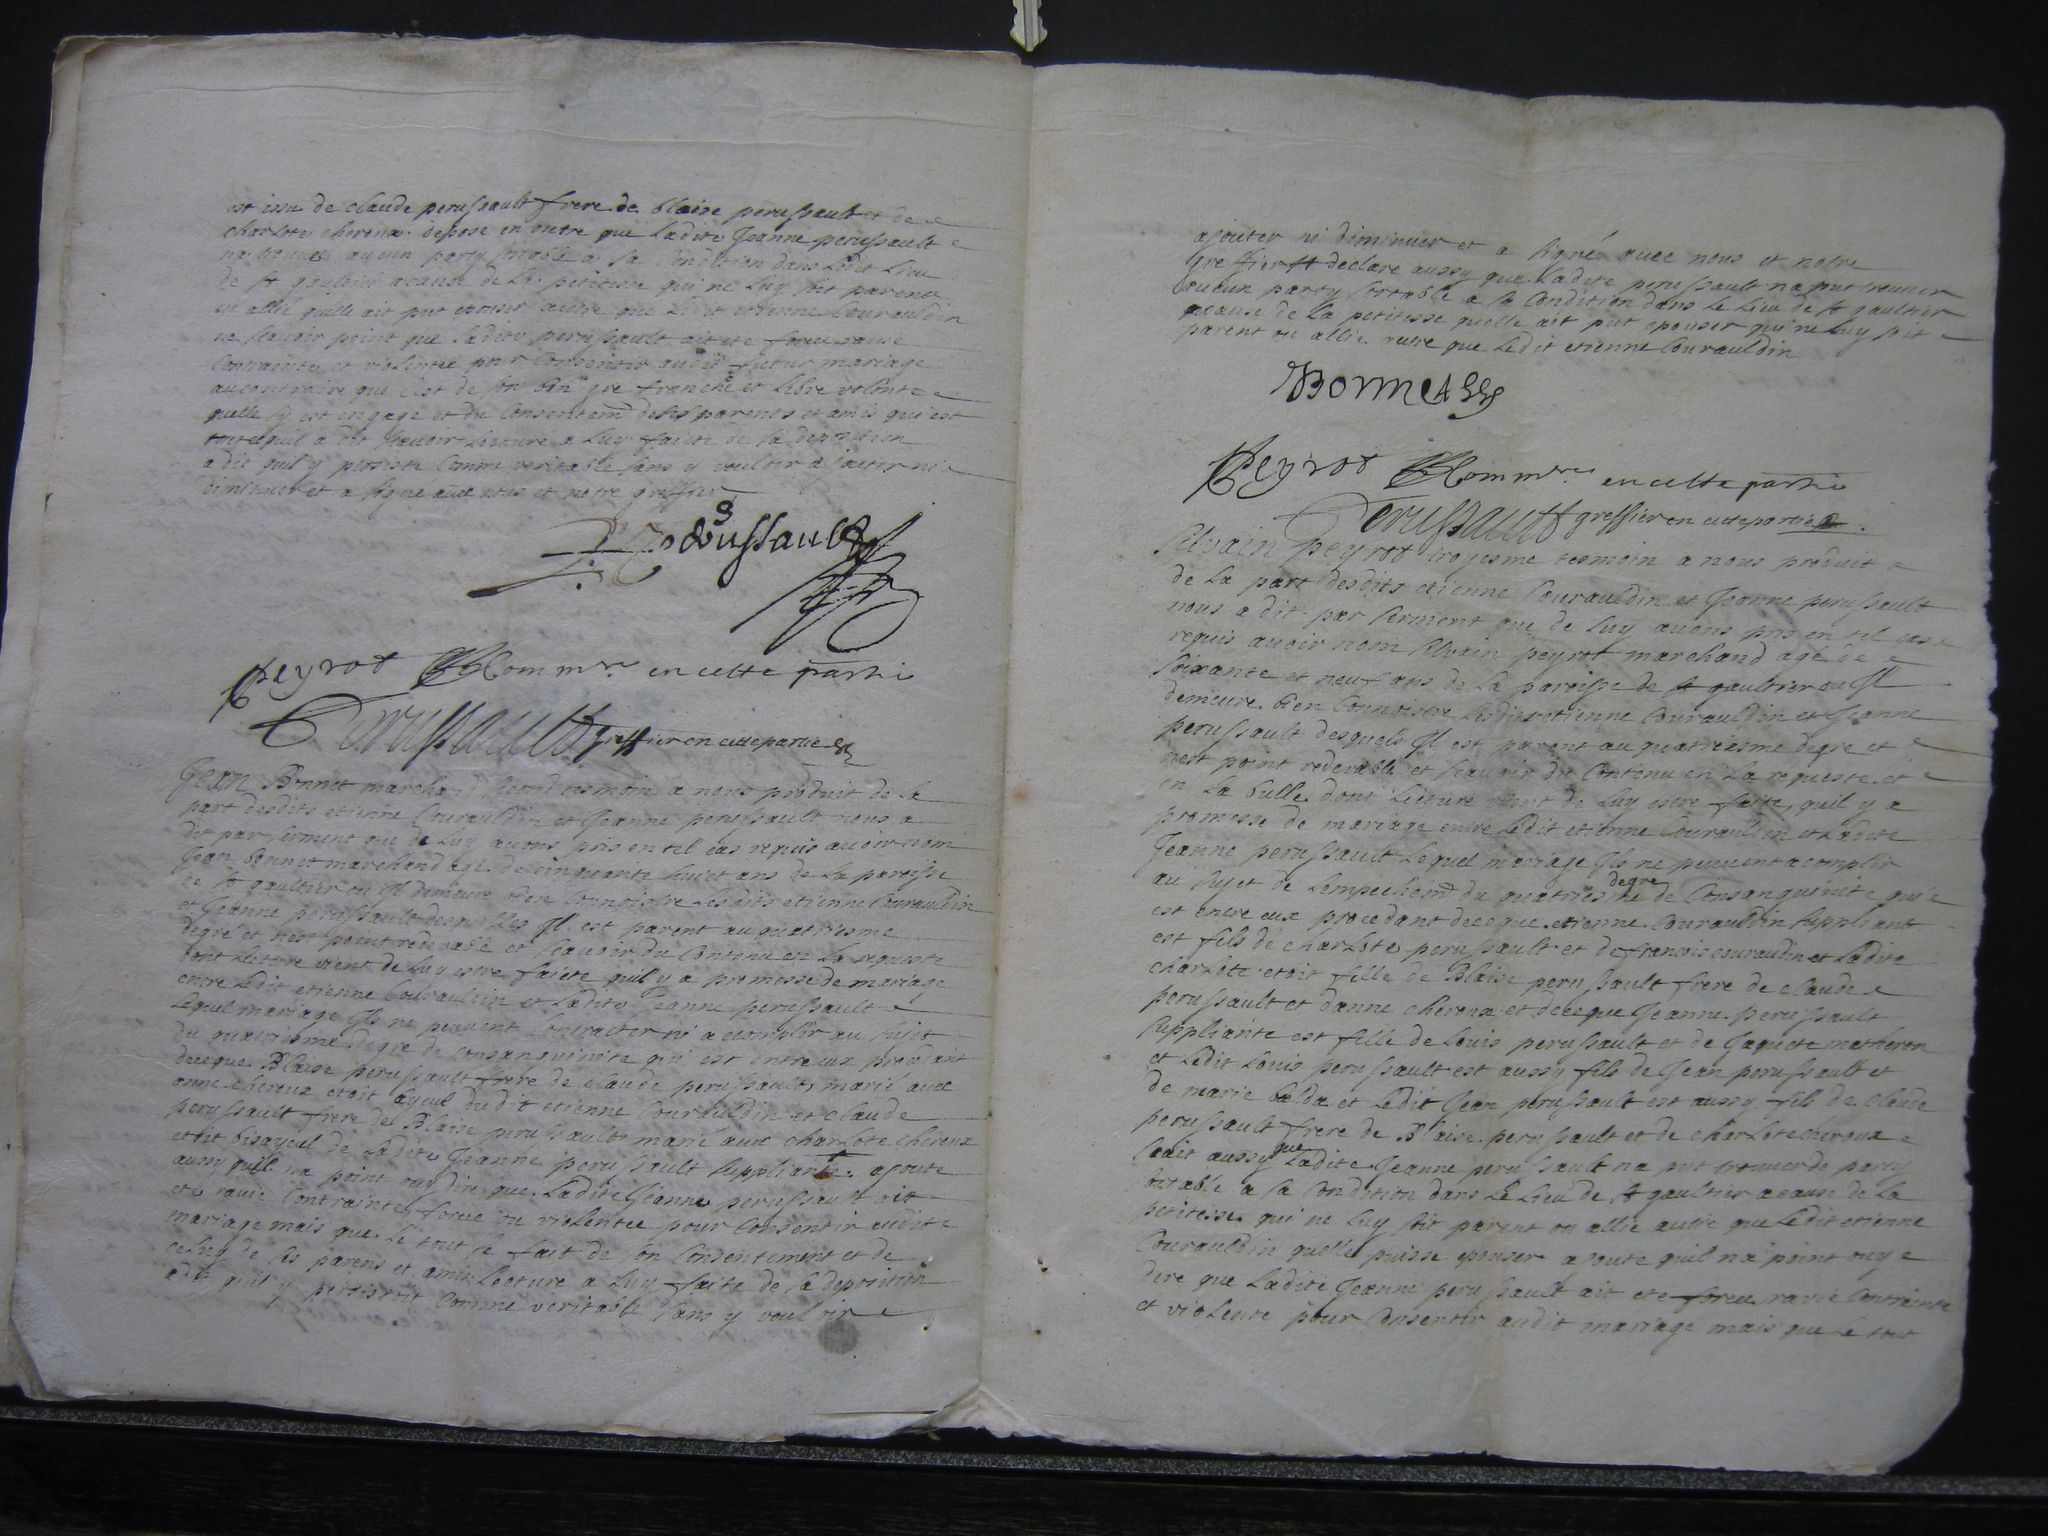 est issu de claude perussault frere de blaise perussault et de
charlote chereux depose en outre que ladite Jeanne perussault
na trouvé aucun party sortable a sa condition dans ledit lieu
de st gaultier acause de la petitesse qui ne luy soit parent
ou allié quelle ait put epouser autre que ledit etienne Courauldin
ne scavoir point que ladite perussault ait ete forcée ravie
contrainte et violentée pour consentir audit futur mariage
aucontraire que cest de son bon gré franche et libre volonte
quelle sy est engage et du consentemt de ses parents et amis qui est
tout ce quil a dit scavoir Lecture a luy faicte de sa deposition
a dit quil y persiste comme veritable sans y vouloir ajouter ni
diminuer et a signe avec nous et notre greffier
peyrot Commre en cette partie
Perussault greffier en cette partie
Jean Bonnet marchand second tesmoin a nous produit de la
part desdits etienne Courauldin et Jeanne perussault nous a
dit par serment que de luy avons pris en tel cas requis avoir nom
Jean bonnet marchand agé de cinquante huict ans de la paroisse
de st gaultier ou Il demeure bien connoistre lesdits etienne Courauldin
et Jeanne perussault desquelles Il est parent au quatriesme
degré et nest point redevable et scavoir du contenu en la requeste
dont lecture vient de luy estre faicte quil y a promesse de mariage
entre ledit etienne Courauldin et ladite Jeanne perussault
lequel mariage Ils ne peuvent contracter ni acomplir au sujet
du quatriesme degré de consanguinite qui est entre eux procedant
deceque Blaise perussault frere de claude perussault marié avec
anne chereux etoit ayeul dudit etienne Courauldin et claude
perussault frere de Blaise perussault marié avec charlote chereux
etoit bisayeul de ladite Jeanne perussault suppliante ajoute
aussy quil na point ouy dire que ladite Jeanne perussault ait
ete ravie contrainte forcée ou violentée pour consentir audit
mariage mais que le tout se fait de son consentement et de
celuy de ses parens et amis Lecture a luy faite de sa deposition
a dit quil y persistoit comme veritable sans y vouloir
ajouter ni diminuer et a signé avec nous et notre
greffier declare aussy que ladite perussault na put trouver
aucun party sortable a sa condition dans le lieu de st gaultier
acause de la petitesse quelle ait put epouser qui ne luy soit
parent ou allié autre que ledit etienne Courauldin
Bonnet
peyrot Commre en cette partie
Perussault greffier en cette partie
Silvain peyrot troyesme tesmoin a nous produit
de la part desdits etienne Courauldin et Jeanne perussault
nous a dit par serment que de luy avons pris en tel cas
requis avoir nom silvain peyrot marchand agé de
soixante et neuf ans de la paroisse de st gaultier ou Il
demeure bien connoistre lesdits etienne Courauldin et Jeanne
perussault desquels Il est parent au quatriesme degré et
nest point redevable et scavoir du contenu en la requeste et
en la bulle dont lecture vient de luy estre faite, quil y a
promesse de mariage entre ledit etienne Courauldin et ladite
Jeanne perussault lequel mariage Ils ne peuvent acomplir
au sujet de lempechemt du quatriesme degré de consanguinité qui
est entre eux procedant deceque etienne Courauldin suppliant
est fils de charlote perussault et de francois couraudin et ladite
charlote etoit fille de Blaise perussault frere de claude
perussault et danne chereux et deceque Jeanne perussault
suppliante est fille de Louis perussault et de Jaquete matheron
et ledit Louis perussault est aussy fils de Jean perussault et
de marie et ledit Jean perussault est aussy fils de claude
perussault frere de Blaise perussault et de charlote chereux
scait aussy que ladite Jeanne perussault na put trouver de party
sortable a sa condition dans le lieu de st gaultier acause de la
petitesse qui ne luy soit parent ou allié autre que ledit etienne
Courauldin quelle puisse epouser ajoute quil na point ouy
dire que ladite Jeanne perussault ait ete forcée ravie contrainte
et violente pour consentir audit mariage mais que le tout